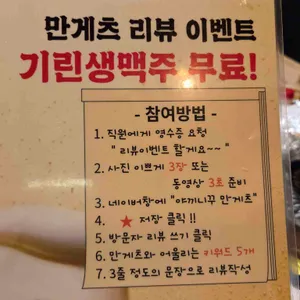 만게츠 리뷰 이벤트
기린생맥주 무료!
- 참여방법 -
1. 직원에게 영수증 요청
" 리뷰이벤트 할게요~~ "
2. 사진 이쁘게 3장 또는
동영상 3초 준비
3. 네이버창에 "야끼니꾸 만게츠"
4. ★ 저장 클릭 !!
5. 방문자 리뷰 쓰기 클릭
6. 만게츠와 어울리는 키워드 5개
7. 3줄 정도의 문장으로 리뷰작성